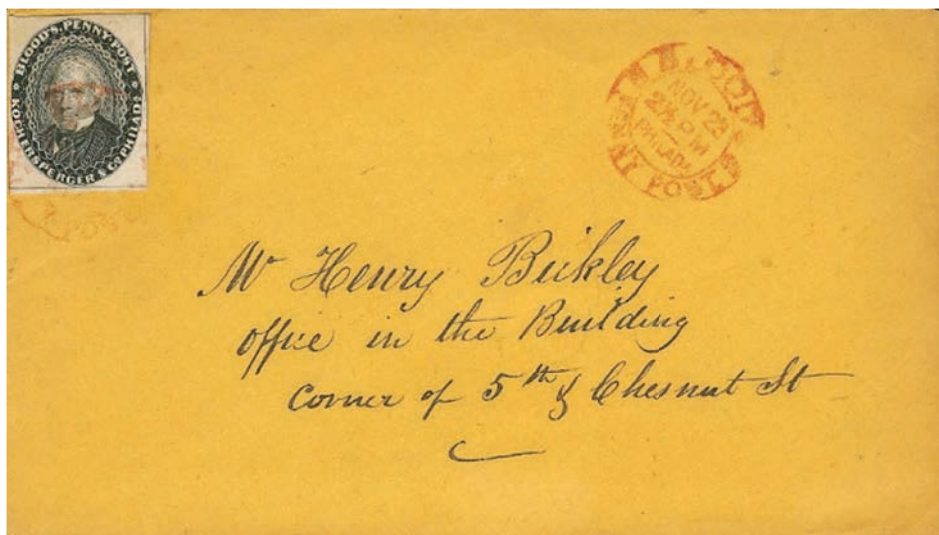 BLOOD'S PENNY POST
KOCHERSPERGER & CO PHILADA
NOV 22
PHILADA
POST
Mr Henry Bickley
Office in the Building
corner of 5th & Chesnut St